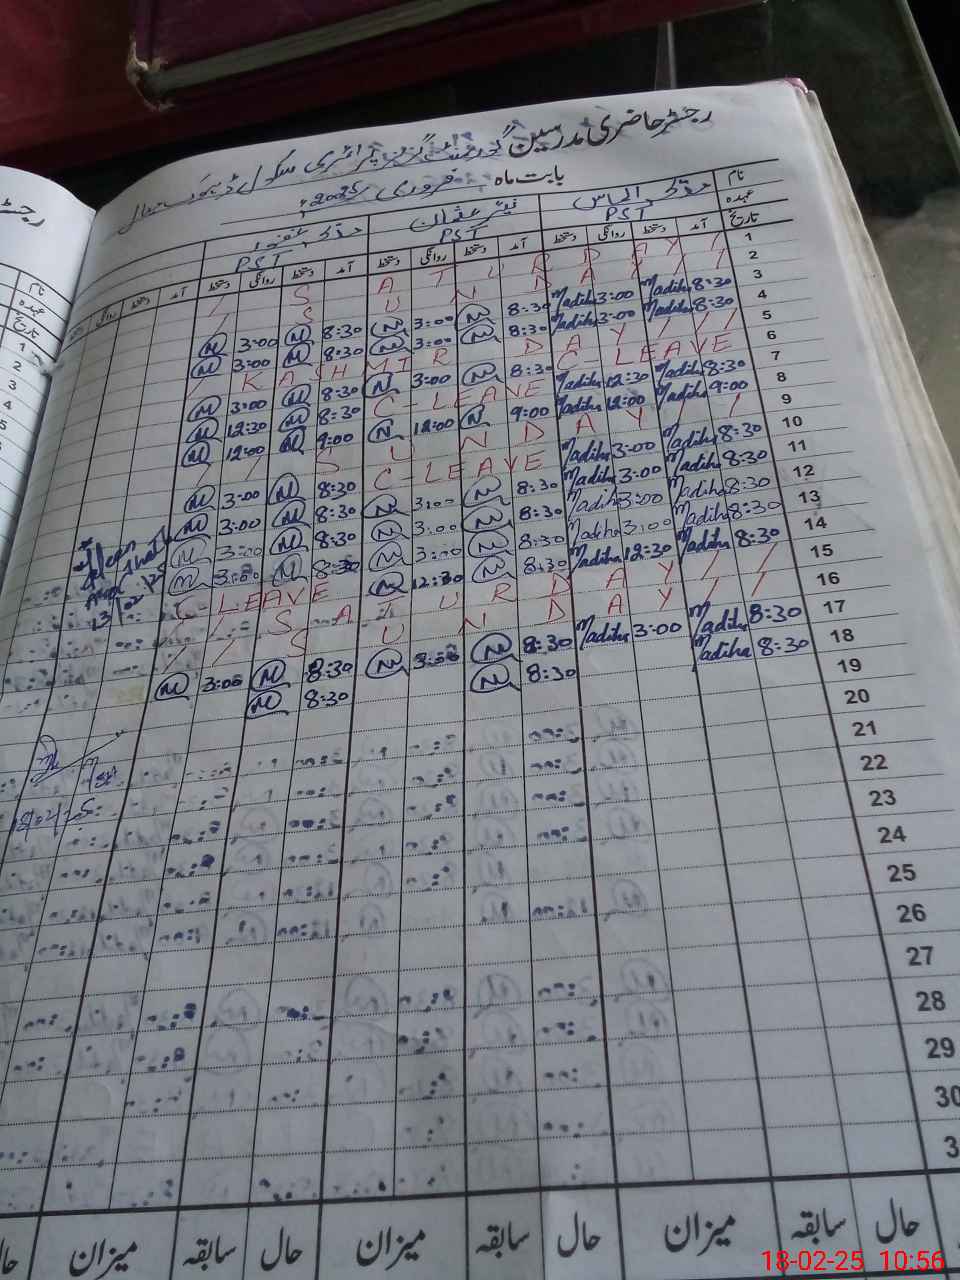 رجسٹر حاضری مدرسین گورنمنٹ گرلز پرائمری سکول
بابت ماہ فروری 2025ء
نام
عہدہ PST PST PST
تاریخ آمد دستخط روانگی دستخط آمد دستخط روانگی دستخط آمد دستخط روانگی دستخط آمد دستخط روانگی دستخط
1 SATURDAY
2 SUNDAY
3 8:30 Madiha 3:00 Madiha 8:30 N 3:00 N 8:30 M 3:00 M
4 8:30 Madiha 3:00 Madiha 8:30 N 3:00 N 8:30 M 3:00 M
5 KASHMIR DAY
6 C-LEAVE 8:30 N 3:00 N 8:30 M 3:00 M
7 8:30 Madiha 12:30 Madiha C-LEAVE 8:30 M 12:30 M
8 9:00 Madiha 12:00 Madiha 9:00 N 12:00 N 9:00 M 12:00 M
9 SUNDAY
10 8:30 Madiha 3:00 Madiha C-LEAVE 8:30 M 3:00 M
11 8:30 Madiha 3:00 Madiha 8:30 N 3:00 N 8:30 M 3:00 M
12 8:30 Madiha 3:00 Madiha 8:30 N 3:00 N 8:30 M 3:00 M
13 8:30 Madiha 3:00 Madiha 8:30 N 3:00 N 8:30 M 3:00 M
14 8:30 Madiha 12:30 Madiha 8:30 N 12:30 N C-LEAVE
15 SATURDAY
16 SUNDAY
17 8:30 Madiha 3:00 Madiha 8:30 N 3:00 N 8:30 M 3:00 M
18 8:30 Madiha 8:30 N 8:30 M
19
20
21
22
23
24
25
26
27
28
29
30
3
18/02/25
حال سابقہ میزان حال سابقہ میزان حال سابقہ میزان حال
18-02-25 10:56